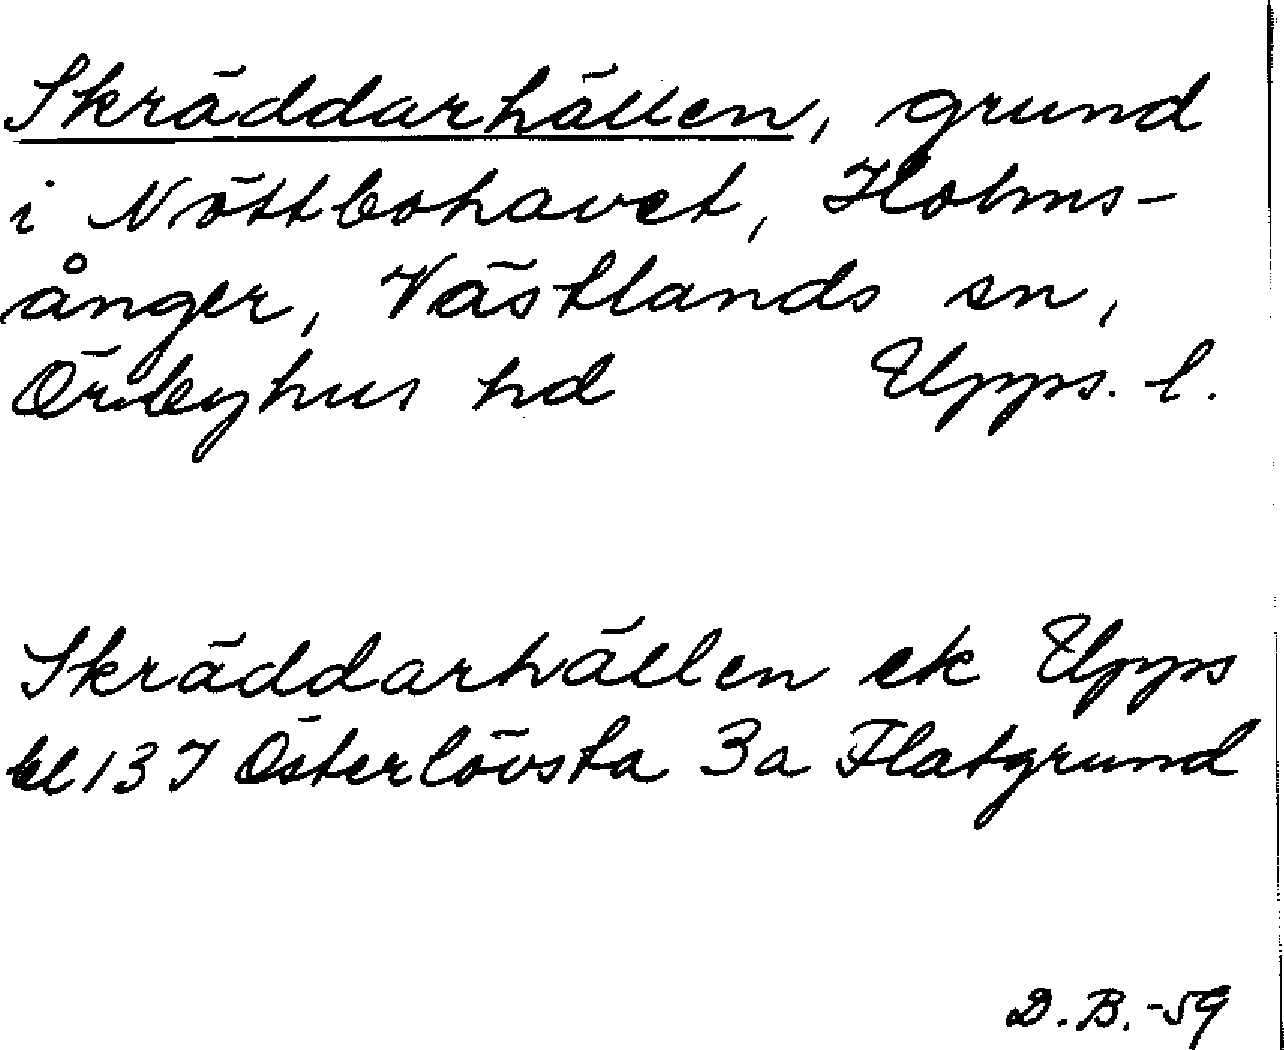 Skräddarhällen, grund
i Nöttbohavet, Holms-
ånger, Västlands sn,
Örbyhus hd Upps. l.
Skräddarhällen ek Upps
bl 13 I Österlövsta 3a Flatgrund
D. B. -59